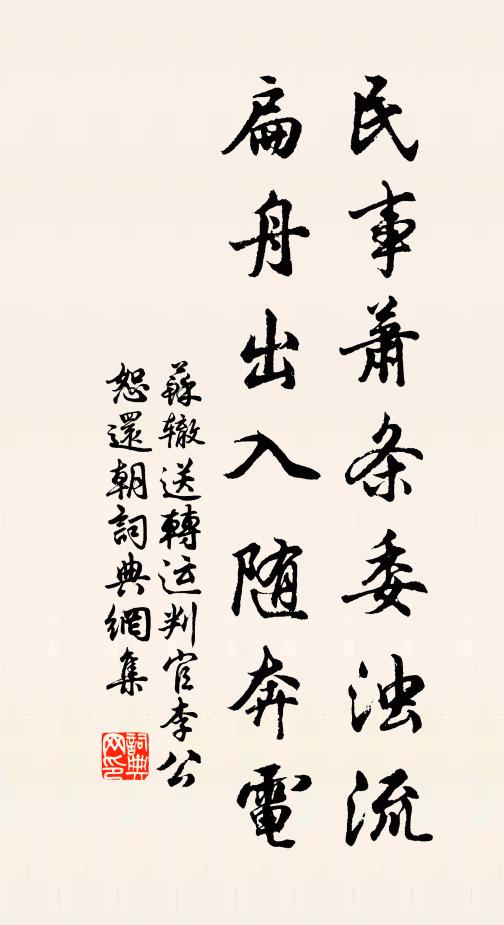 民事萧条委浊流
扁舟出入随奔電
蘇辙送轉运判官李公
恕還朝詞典網集
詞典网印